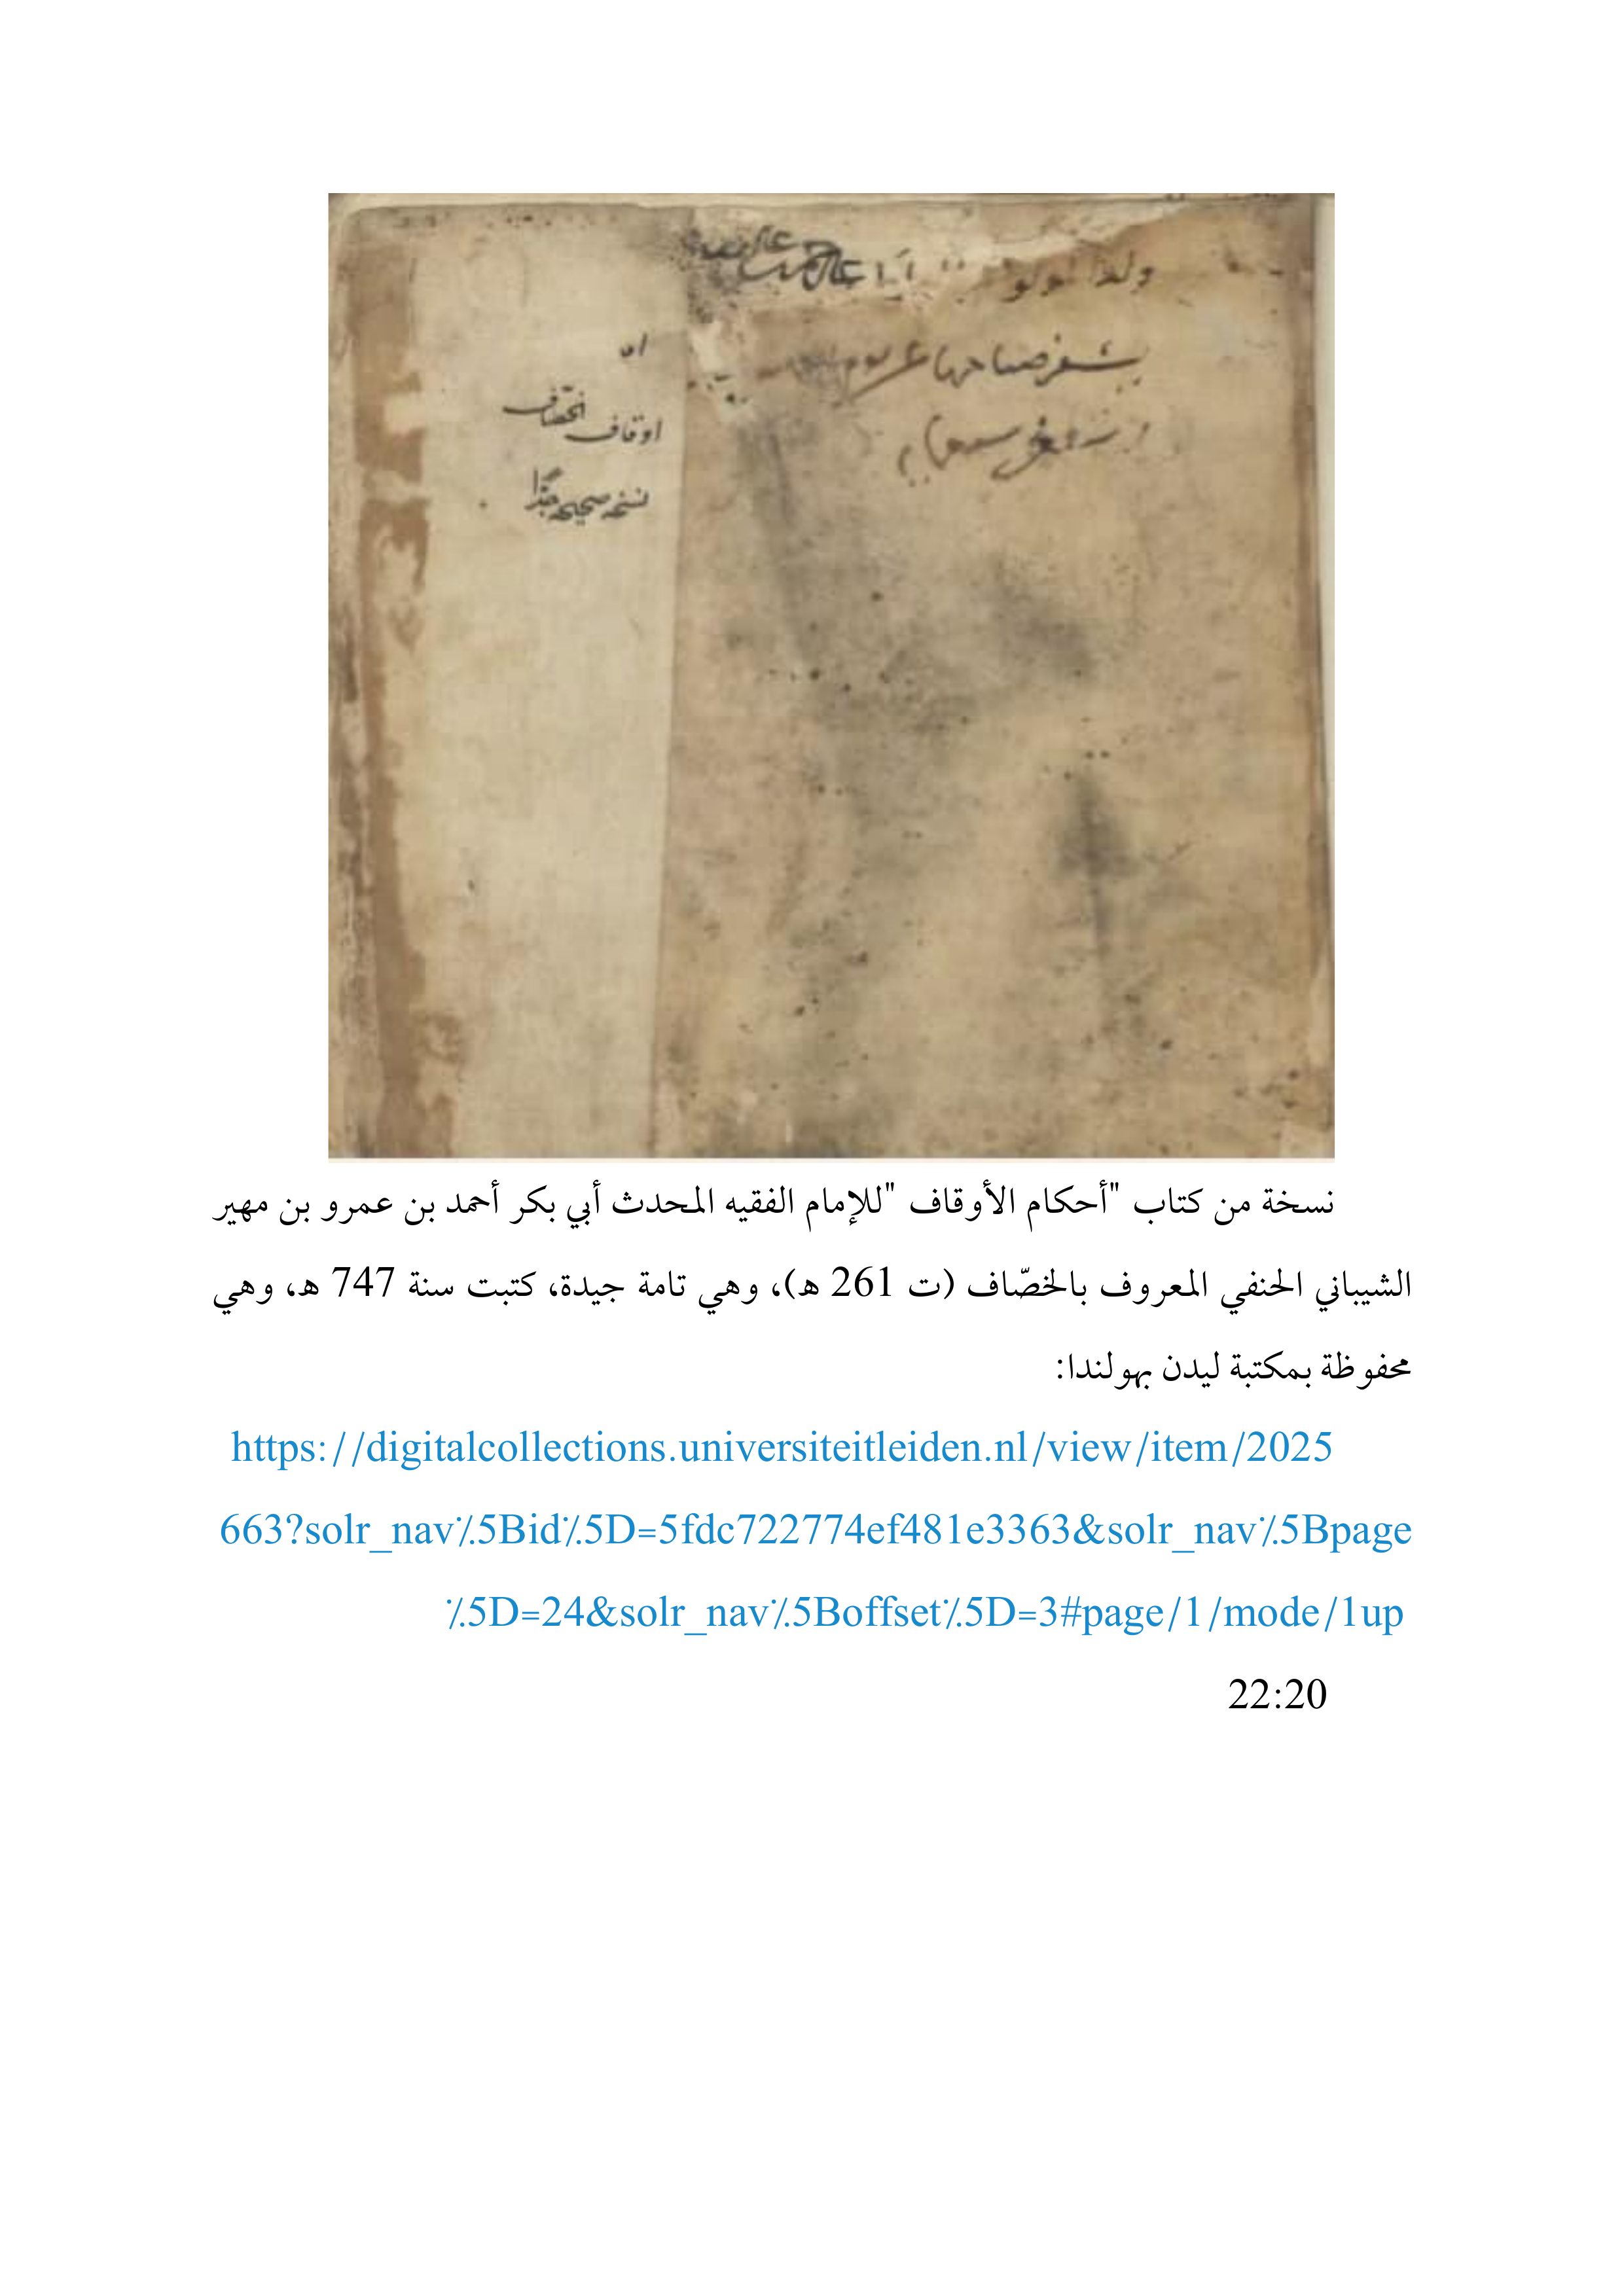 اوقاف الخصاف
نسخة صحيحة جدا
نسخة من كتاب "أحكام الأوقاف "للإمام الفقيه المحدث أبي بكر أحمد بن عمرو بن مهير
الشيباني الحنفي المعروف بالخصّاف (ت 261 ه)، وهي تامة جيدة، كتبت سنة 747 ه، وهي
محفوظة بمكتبة ليدن بهولندا:
https://digitalcollections.universiteitleiden.nl/view/item/2025
663?solr_nav٪5Bid٪5D=5fdc722774ef481e3363&solr_nav٪5Bpage
٪5D=24&solr_nav٪5Boffset٪5D=3#page/1/mode/1up
22:20